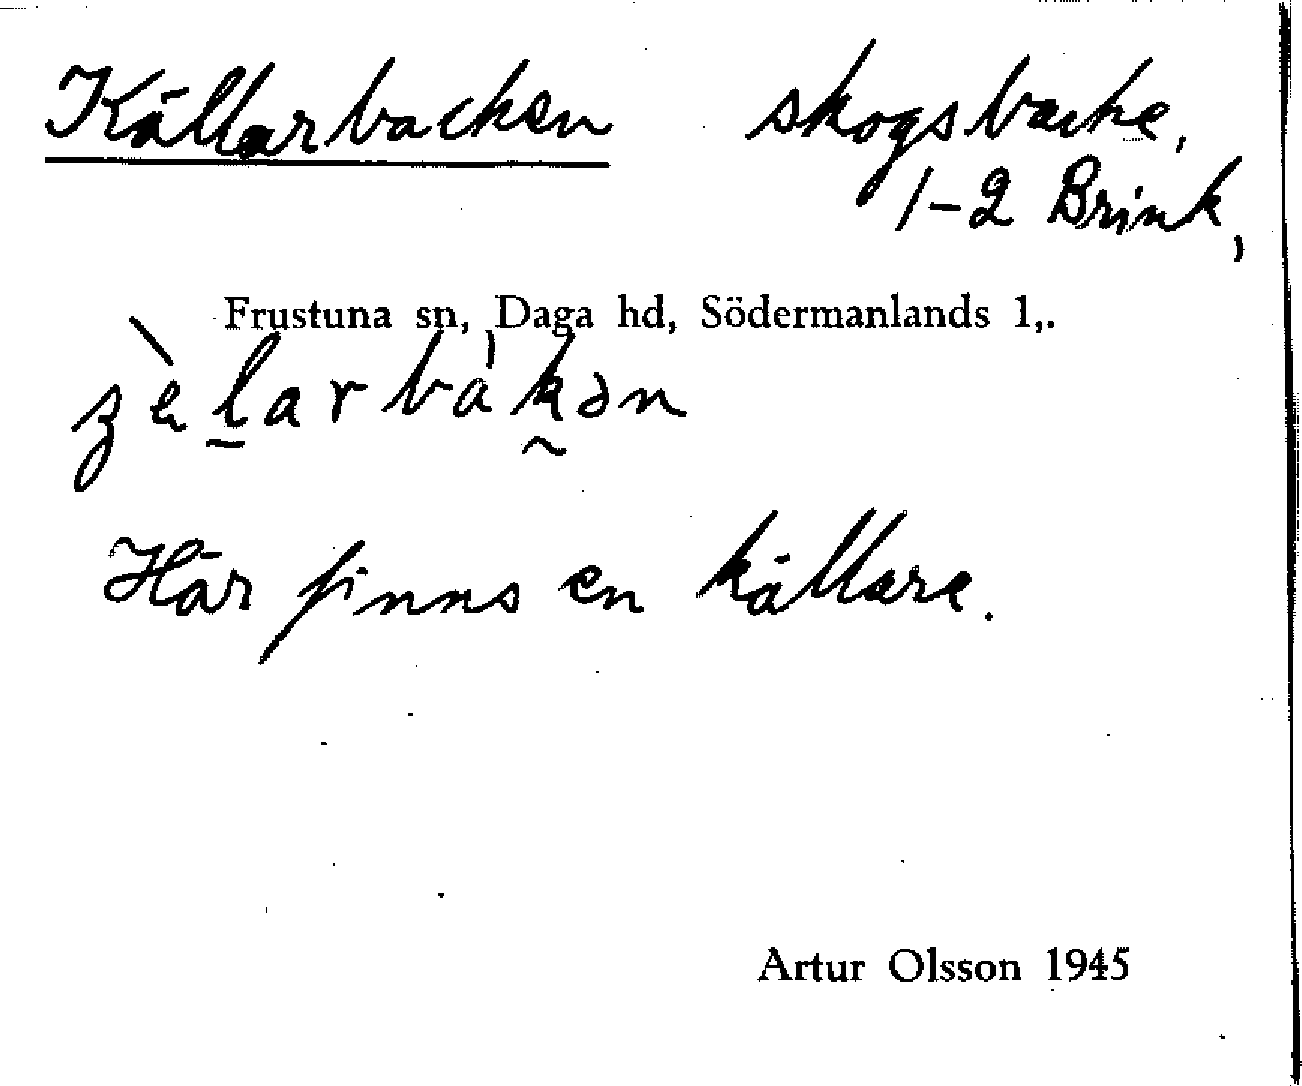 Källarbacken skogsbacke,
1-2 Brink,
Frustuna sn, Daga hd, Södermanlands l,.
Här finns en källare.
Artur Olsson 1945